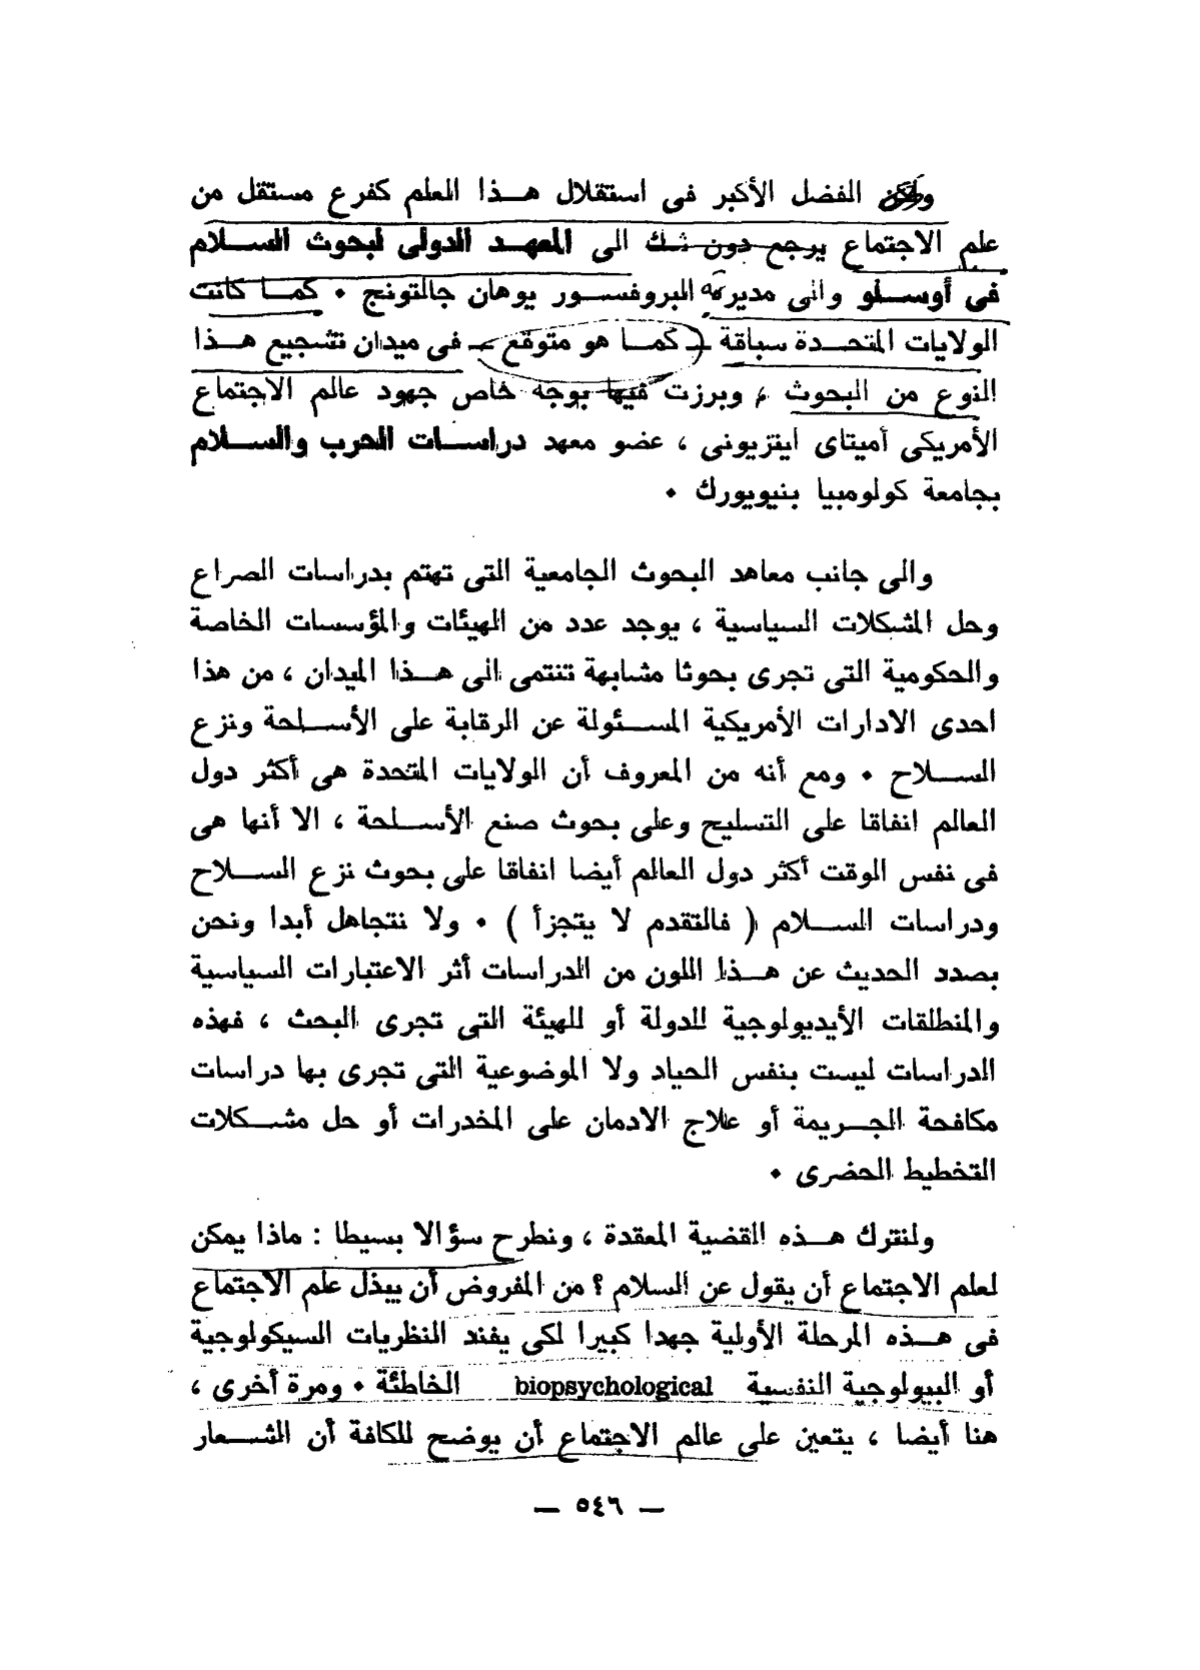 ولكن الفضل الأكبر فى استقلال هـذا العلم كفرع مستقل من
علم الاجتماع يرجع دون شك الى المعهـد الدولى لبحوث السـلام
فى أوسـلو والى مديره البروفسـور يوهان جالتونج . كمـا كانت
الولايات المتحـدة سباقة ( كمـا هو متوقع ) فى ميدان تشجيع هـذا
النوع من البحوث ، وبرزت فيها بوجه خاص جهود عالم الاجتماع
الأمريكى أميتاى ايتزيونى ، عضو معهد دراسـات الحرب والسـلام
بجامعة كولومبيا بنيويورك .
والى جانب معاهد البحوث الجامعية التى تهتم بدراسات الصراع
وحل المشكلات السياسية ، يوجد عدد من الهيئات والمؤسسات الخاصة
والحكومية التى تجرى بحوثا مشابهة تنتمى الى هـذا الميدان ، من هذا
احدى الادارات الأمريكية المسـئولة عن الرقابة على الأسـلحة ونزع
السـلاح . ومع أنه من المعروف أن الولايات المتحدة هى أكثر دول
العالم انفاقا على التسليح وعلى بحوث صنع الأسـلحة ، الا أنها هى
فى نفس الوقت أكثر دول العالم أيضا انفاقا على بحوث نزع السـلاح
ودراسات السـلام ( فالتقدم لا يتجزأ ) . ولا نتجاهل أبدا ونحن
بصدد الحديث عن هـذا اللون من الدراسات أثر الاعتبارات السياسية
والمنطلقات الأيديولوجية للدولة أو للهيئة التى تجرى البحث ، فهذه
الدراسات ليست بنفس الحياد ولا الموضوعية التى تجرى بها دراسات
مكافحة الجـريمة أو علاج الادمان على المخدرات أو حل مشـكلات
التخطيط الحضرى .
ولنترك هـذه القضية المعقدة ، ونطرح سؤالا بسيطا : ماذا يمكن
لعلم الاجتماع أن يقول عن السلام ؟ من المفروض أن يبذل علم الاجتماع
فى هـذه المرحلة الأولية جهدا كبيرا لكى يفند النظريات السيكولوجية
أو البيولوجية النفسية biopsychological الخاطئة . ومرة أخرى ،
هنا أيضا ، يتعين على عالم الاجتماع أن يوضح للكافة أن الشـعار
— ٥٤٦ —